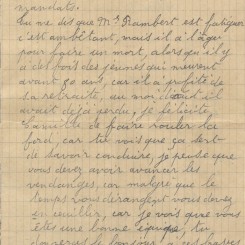 mandats.
tu me dis que Mr Rambert est fatigué
c'est embêtant, mais il a l'âge
pour faire un mort, alors qu'il y
a des fois des jeunes qui meurent
avant 50 ans, car il a profité de
sa retraite, au moins
avait déjà perdu, je félicite
de faire rouler la
ford, car tu vois que ça sert
de savoir conduire, je pense que
vous devez avoir avancé les
vendanges, car malgré que le
temps vous dérangent vous devez
en cueillir, car je vois que vous
êtes une bonne équipe, tu